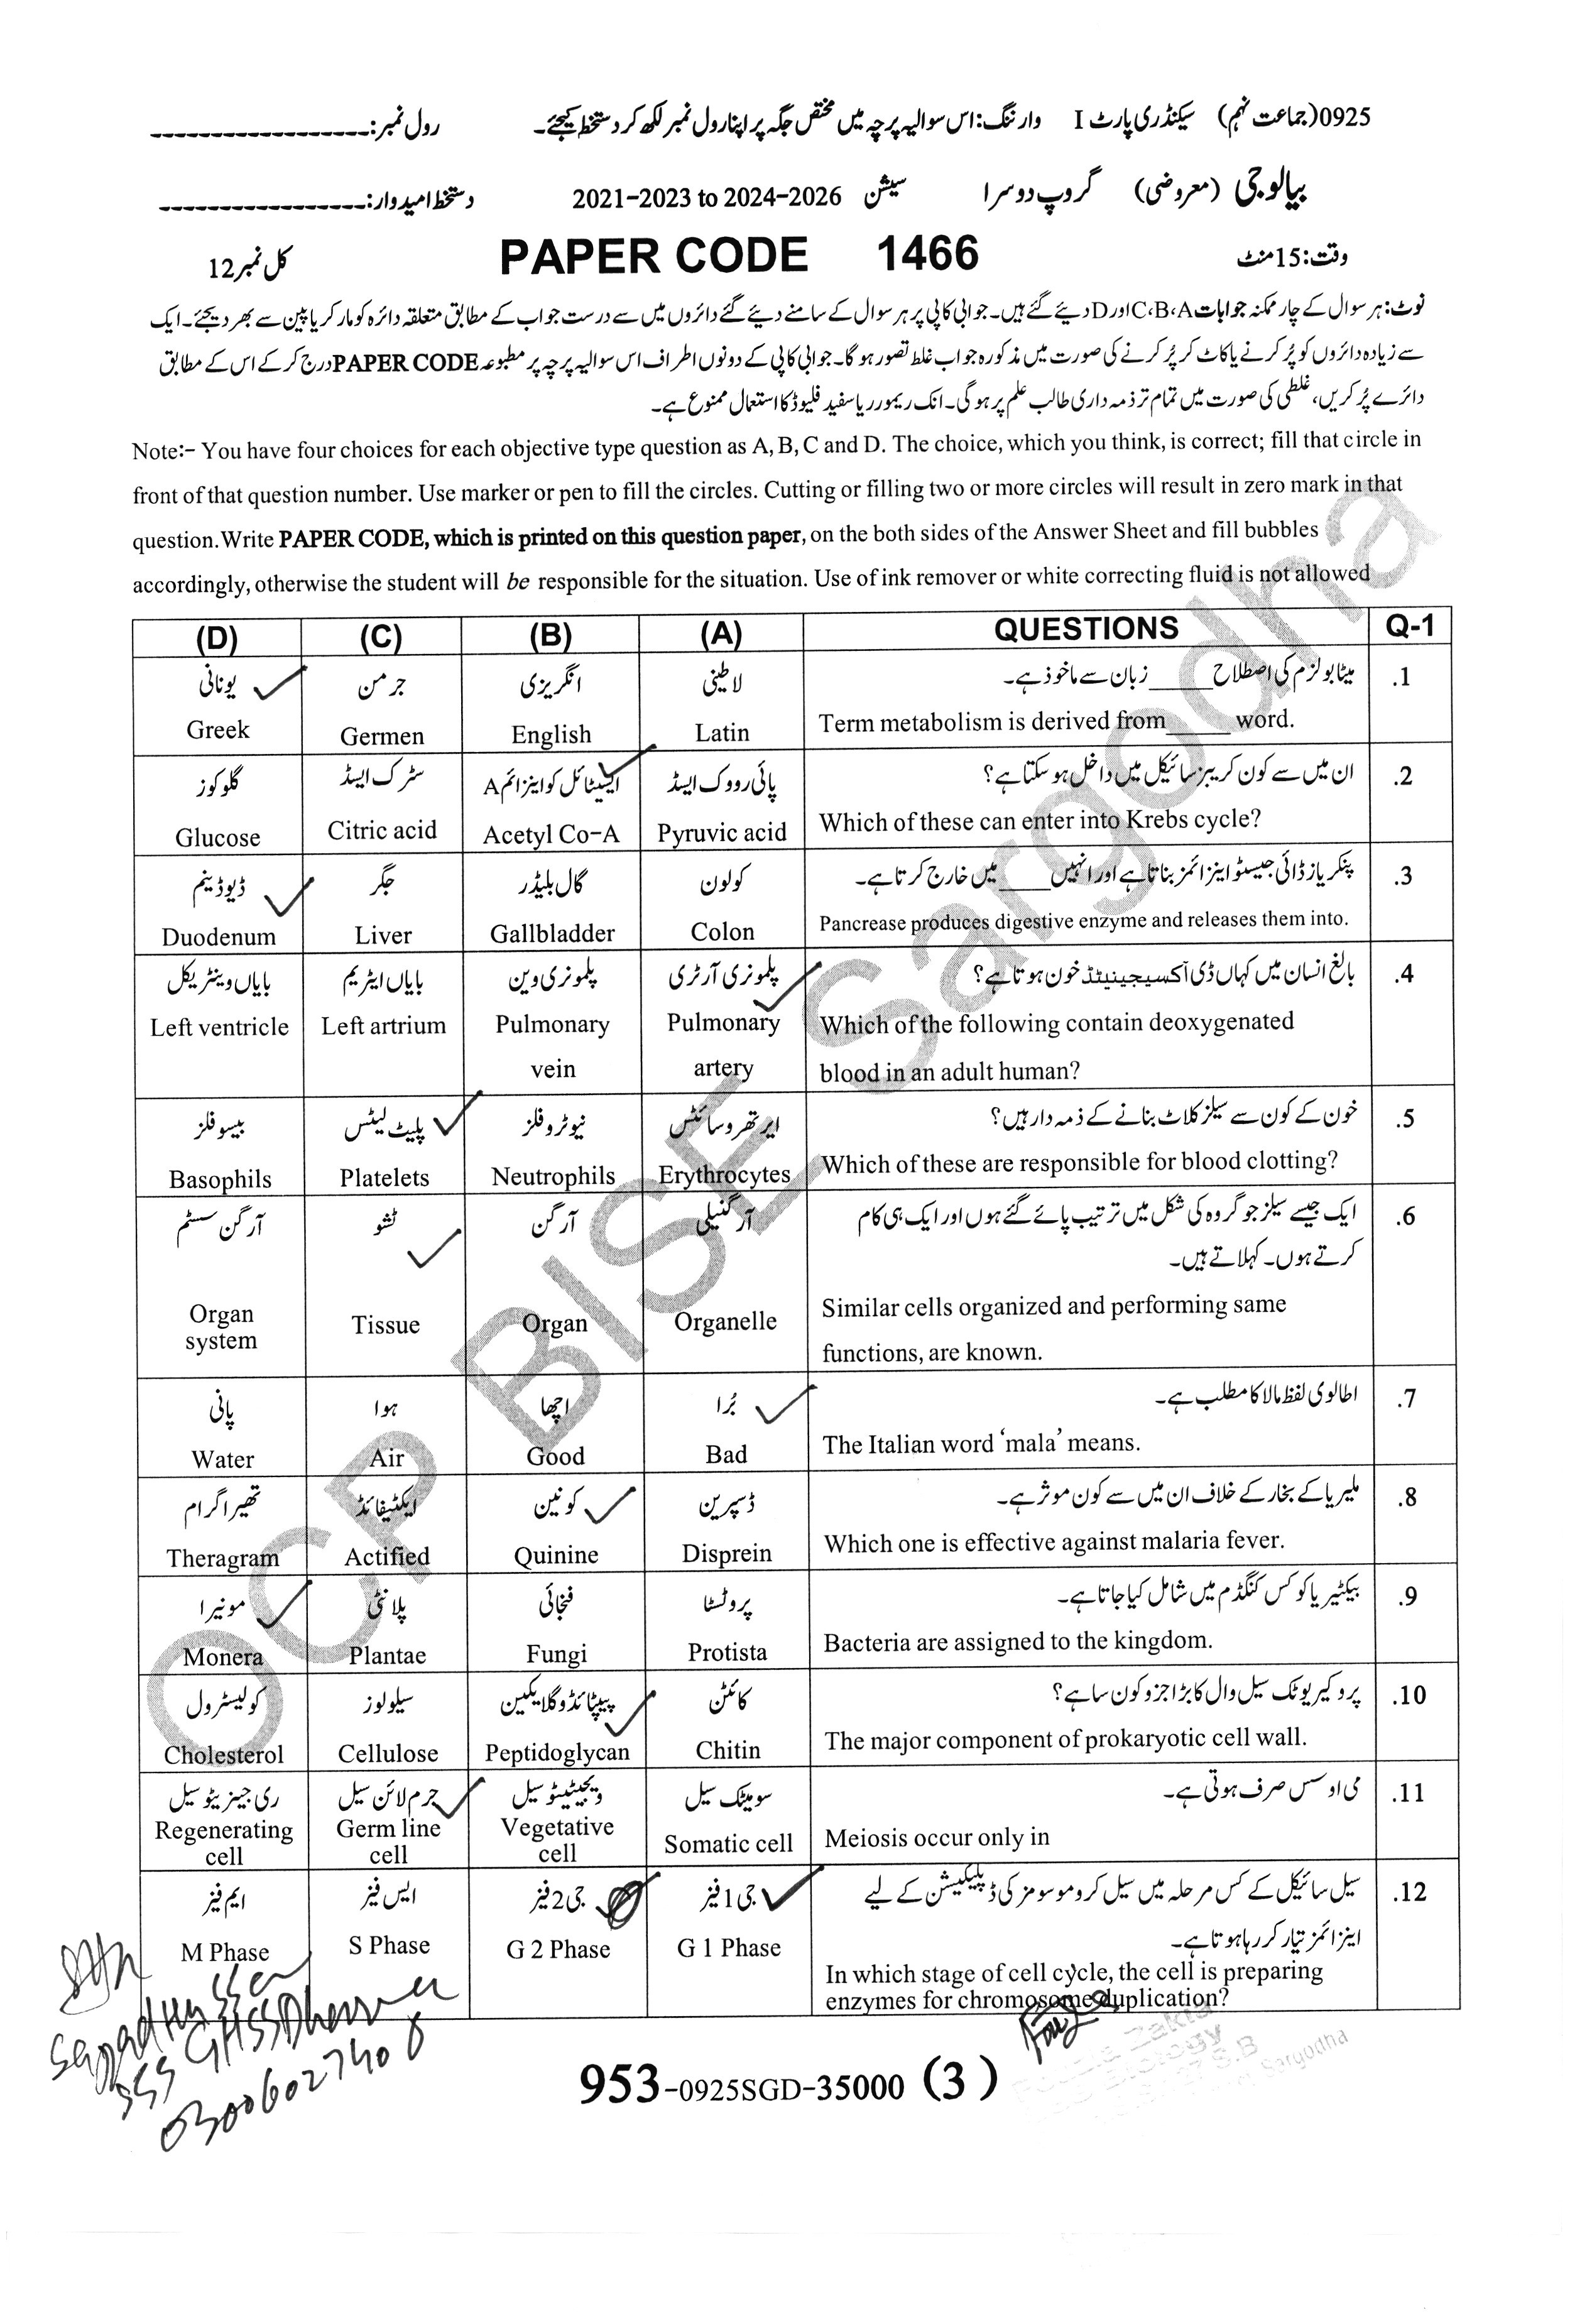 0925(جماعت نہم) سیکنڈری پارٹ I وارننگ: اس سوالیہ پرچہ میں مختص جگہ پر اپنا رول نمبر لکھ کر دستخط کیجئے۔ رول نمبر:
بیالوجی (معروضی) گروپ دوسرا سیشن 2021-2023 to 2024-2026 دستخط امیدوار:
وقت: 15 منٹ PAPER CODE 1466 کل نمبر 12
نوٹ: ہر سوال کے چار ممکنہ جوابات C،B،A اور D دیئے گئے ہیں۔ جوابی کاپی پر ہر سوال کے سامنے دیئے گئے دائروں میں سے درست جواب کے مطابق متعلقہ دائرہ کو مارکر یا پین سے بھر دیجئے۔ ایک
سے زیادہ دائروں کو پُر کرنے یا کاٹ کر پُر کرنے کی صورت میں مذکورہ جواب غلط تصور ہو گا۔ جوابی کاپی کے دونوں اطراف اس سوالیہ پرچہ پر مطبوعہ PAPER CODE درج کر کے اس کے مطابق
دائرے پُر کریں، غلطی کی صورت میں تمام تر ذمہ داری طالب علم پر ہو گی۔ انک ریمور یا سفید فلیوڈ کا استعمال ممنوع ہے۔
Note:- You have four choices for each objective type question as A, B, C and D. The choice, which you think, is correct; fill that circle in
front of that question number. Use marker or pen to fill the circles. Cutting or filling two or more circles will result in zero mark in that
question.Write PAPER CODE, which is printed on this question paper, on the both sides of the Answer Sheet and fill bubbles
accordingly, otherwise the student will be responsible for the situation. Use of ink remover or white correcting fluid is not allowed
(D) (C) (B) (A) QUESTIONS Q-1
.1 میٹابولزم کی اصطلاح _____ زبان سے ماخوذ ہے۔ لاطینی انگریزی جرمن یونانی
Greek Germen English Latin Term metabolism is derived from_____ word.
.2 ان میں سے کون کریبز سائیکل میں داخل ہو سکتا ہے؟ پائی رووک ایسڈ ایسیٹائل کو اینزائم A سٹرک ایسڈ گلوکوز
Glucose Citric acid Acetyl Co-A Pyruvic acid Which of these can enter into Krebs cycle?
.3 پنکریاز ڈائی جیسٹو اینزائمز بناتا ہے اور انہیں ____ میں خارج کرتا ہے۔ کولون گال بلیڈر جگر ڈیوڈینم
Duodenum Liver Gallbladder Colon Pancrease produces digestive enzyme and releases them into.
.4 بالغ انسان میں کہاں ڈی آکسیجینیٹڈ خون ہوتا ہے؟ پلمونری آرٹری پلمونری وین بایاں ایٹریم بایاں وینٹریکل
Left ventricle Left artrium Pulmonary Pulmonary Which of the following contain deoxygenated
vein artery blood in an adult human?
.5 خون کے کون سے سیلز کلاٹ بنانے کے ذمہ دار ہیں؟ ایرتھروسائٹس نیوٹروفلز پلیٹ لیٹس بیسوفلز
Basophils Platelets Neutrophils Erythrocytes Which of these are responsible for blood clotting?
.6 ایک جیسے سیلز جو گروہ کی شکل میں ترتیب پائے گئے ہوں اور ایک ہی کام آرگنیلی آرگن ٹشو آرگن سسٹم
کرتے ہوں۔ کہلاتے ہیں۔
Organ system Tissue Organ Organelle Similar cells organized and performing same
functions, are known.
.7 اطالوی لفظ مالا کا مطلب ہے۔ بُرا اچھا ہوا پانی
Water Air Good Bad The Italian word ‘mala’ means.
.8 ملیریا کے بخار کے خلاف ان میں سے کون موثر ہے۔ ڈسپرین کونین ایکٹیفائڈ تھیراگرام
Theragram Actified Quinine Disprein Which one is effective against malaria fever.
.9 بیکٹیریا کو کس کنگڈم میں شامل کیا جاتا ہے۔ پروٹسٹا فنجائی پلانٹی مونیرا
Monera Plantae Fungi Protista Bacteria are assigned to the kingdom.
.10 پروکیریوٹک سیل وال کا بڑا جزو کون سا ہے؟ کائٹن پیپٹائڈوگلائیکین سیلولوز کولیسٹرول
Cholesterol Cellulose Peptidoglycan Chitin The major component of prokaryotic cell wall.
.11 می اوسس صرف ہوتی ہے۔ سومیٹک سیل ویجیٹیٹو سیل جرم لائن سیل ری جینریٹو سیل
Regenerating cell Germ line cell Vegetative cell Somatic cell Meiosis occur only in
.12 سیل سائیکل کے کس مرحلہ میں سیل کروموسومز کی ڈپلیکیشن کے لیے جی 1 فیز جی 2 فیز ایس فیز ایم فیز
اینزائمز تیار کر رہا ہوتا ہے۔
M Phase S Phase G 2 Phase G 1 Phase In which stage of cell cycle, the cell is preparing
enzymes for chromosome duplication?
OCP BISE Sargodha
SSS GHSS
03006027408
953-0925SGD-35000 (3)
Sargodha